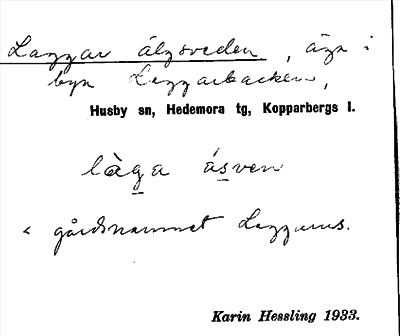 Laggar älgsveden, äga i
byn Laggarbacken,
Husby sn, Hedemora tg, Kopparbergs l.
làga ásven
< gårdsnamnet Laggums.
Karin Hessling 1933.